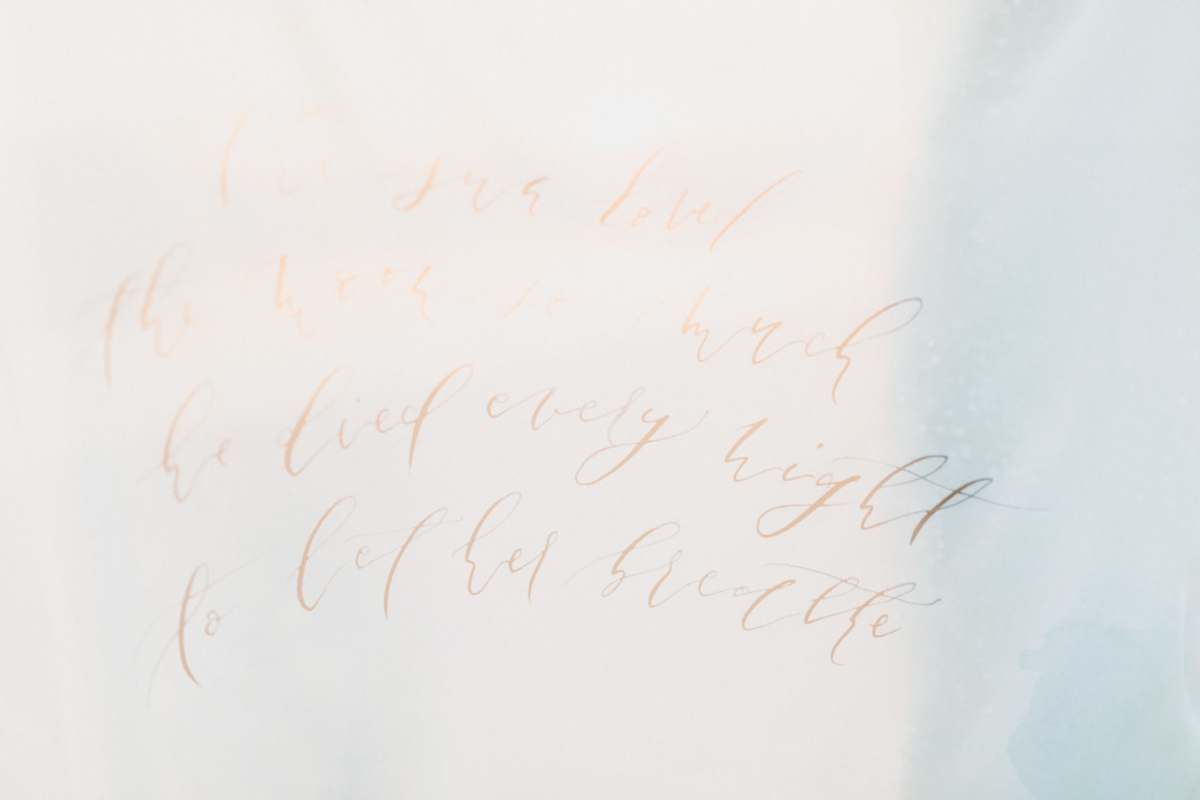 The sun loved
the moon so much
he died every night
to let her breathe